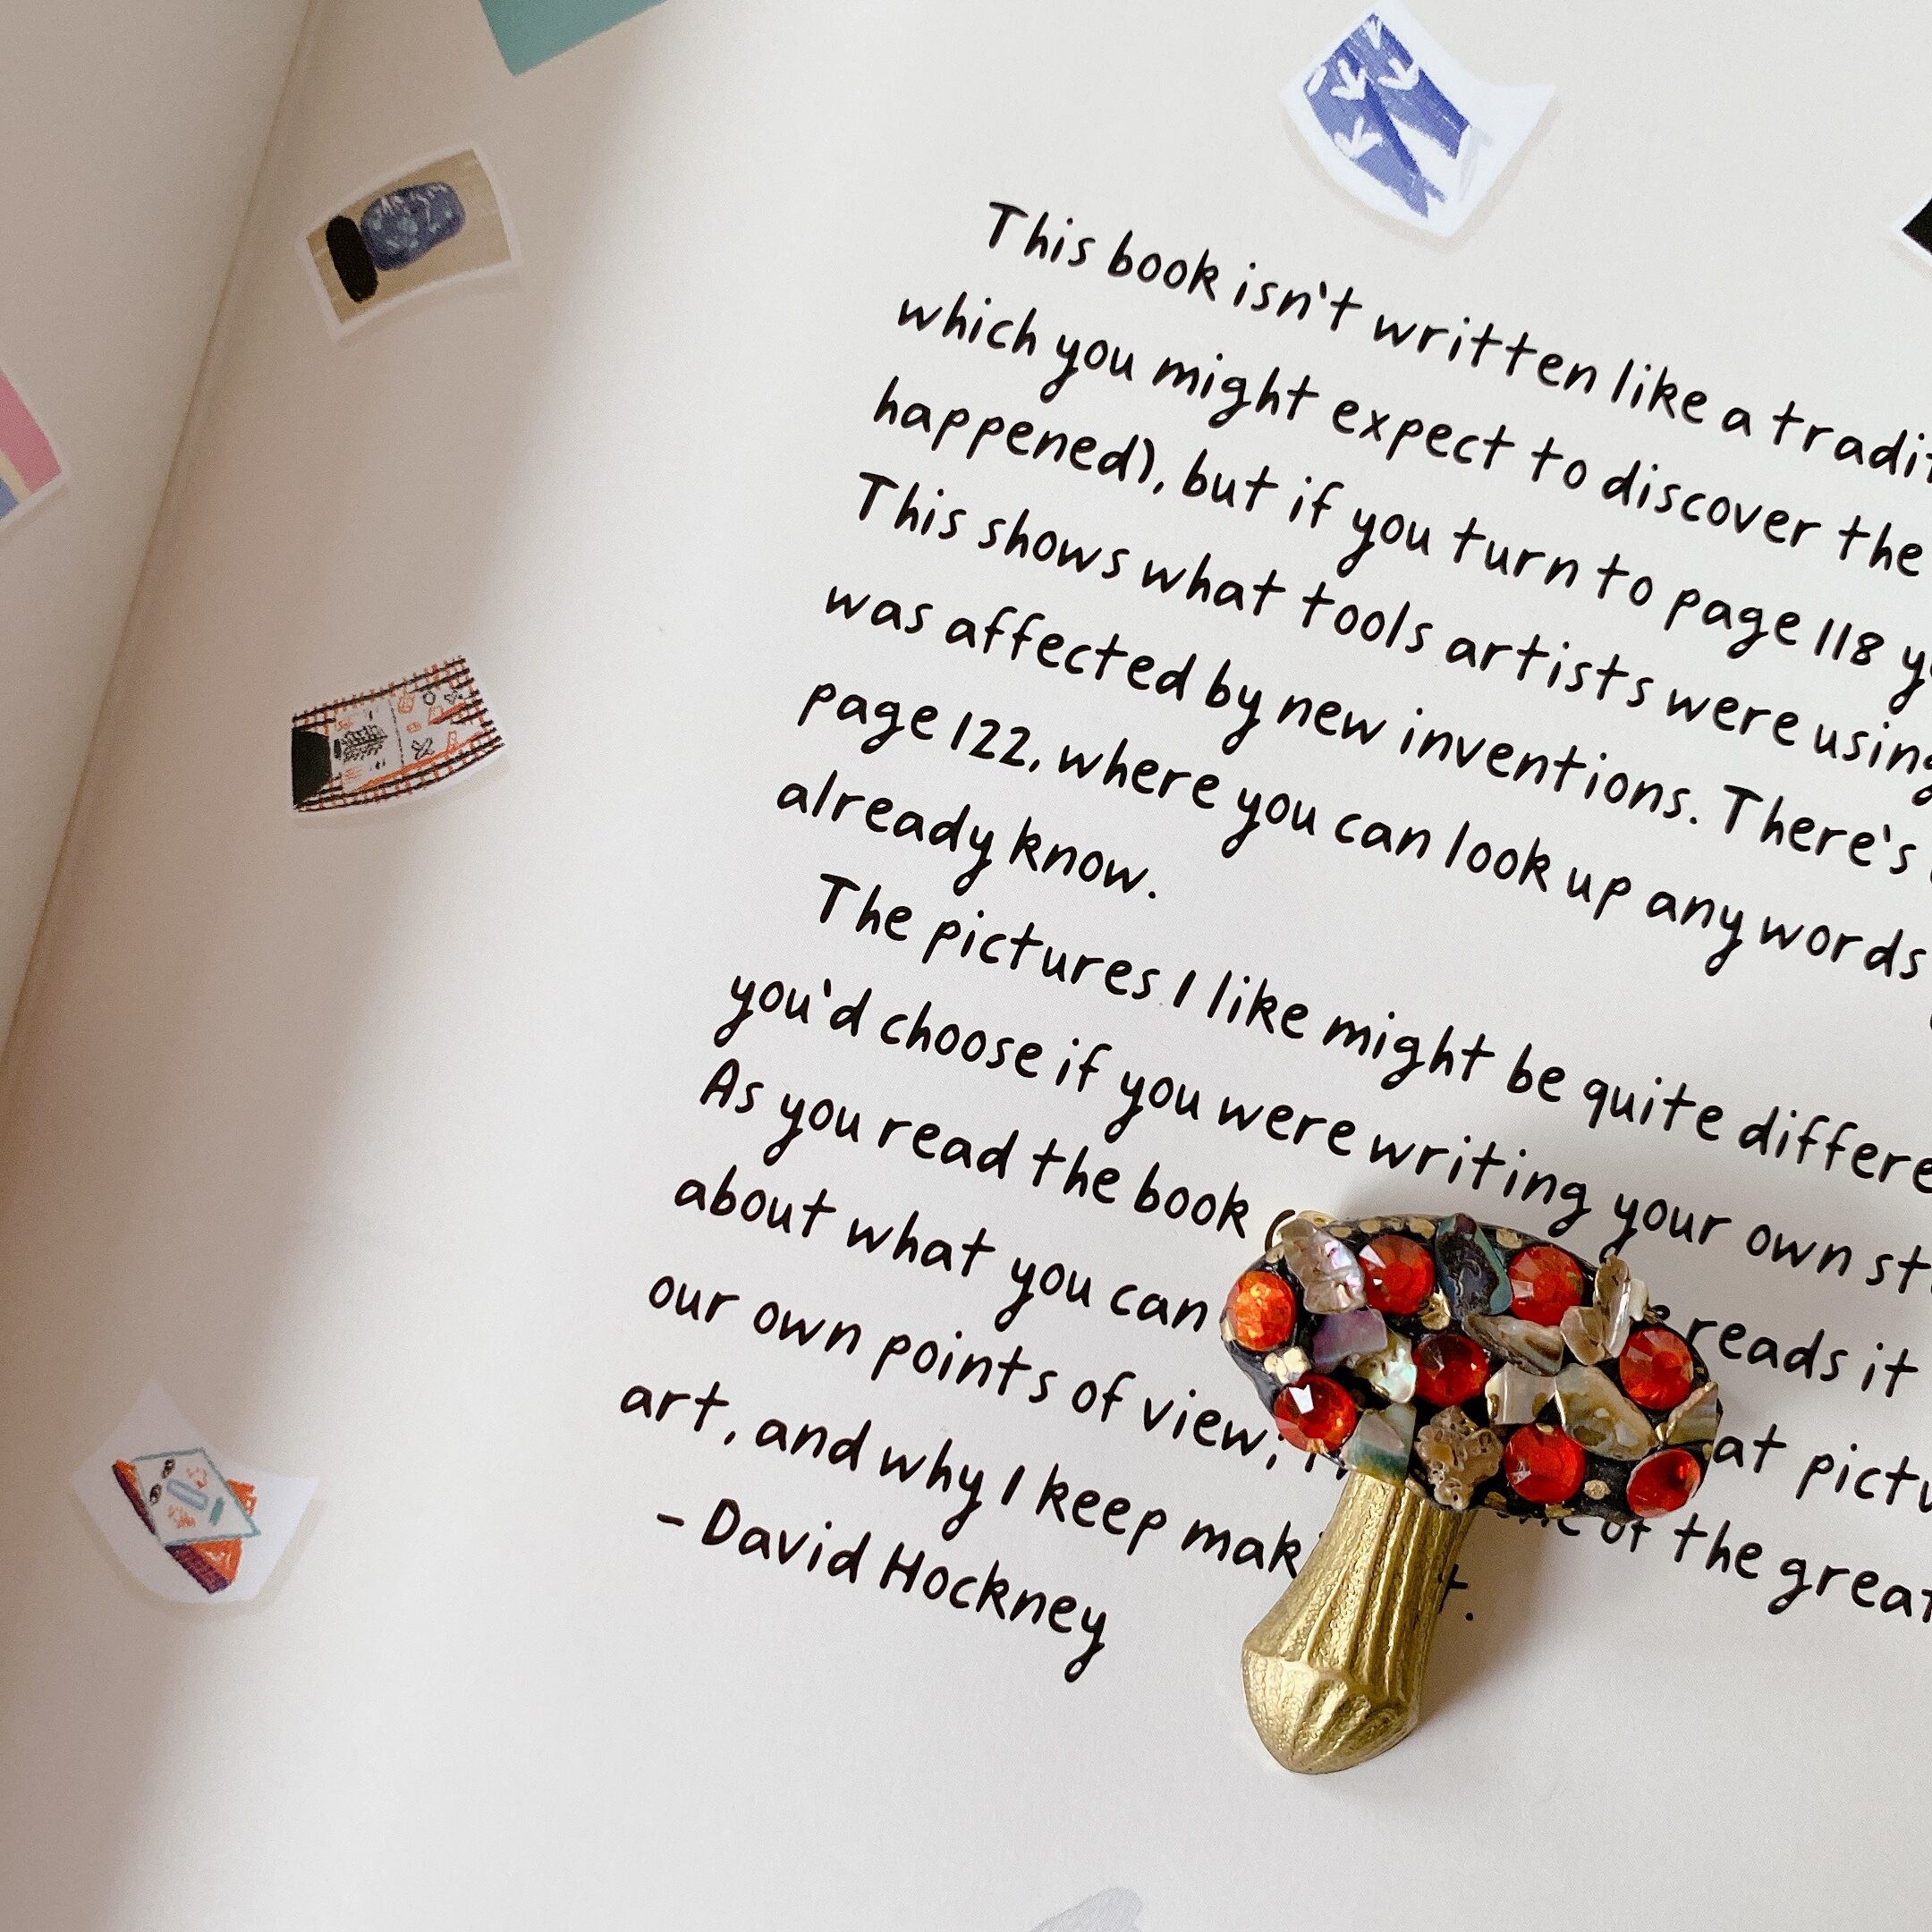 This book isn't written like a
which you might expect to discover the
happened), but if you turn to page 118
This shows what tools artists were using
was affected by new inventions. There's
page 122, where you can look up any words
already know.
The pictures I like might be quite
you'd choose if you were writing your own
As you read the book reads it
about what you can at
our own points of view; of the
art, and why I keep
- David Hockney